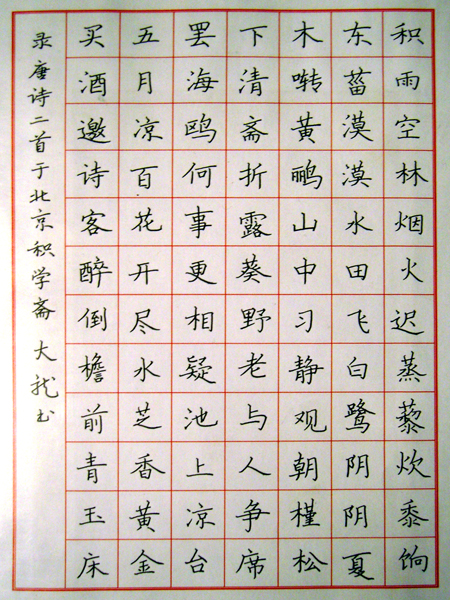 积雨空林烟火迟蒸藜炊黍饷
东菑漠漠水田飞白鹭阴阴夏
木啭黄鹂山中习静观朝槿松
下清斋折露葵野老与人争席
罢海鸥何事更相疑池上凉台
五月凉百花开尽水芝香黄金
买酒邀诗客醉倒檐前青玉床
录唐诗二首于北京积学斋 大龙书